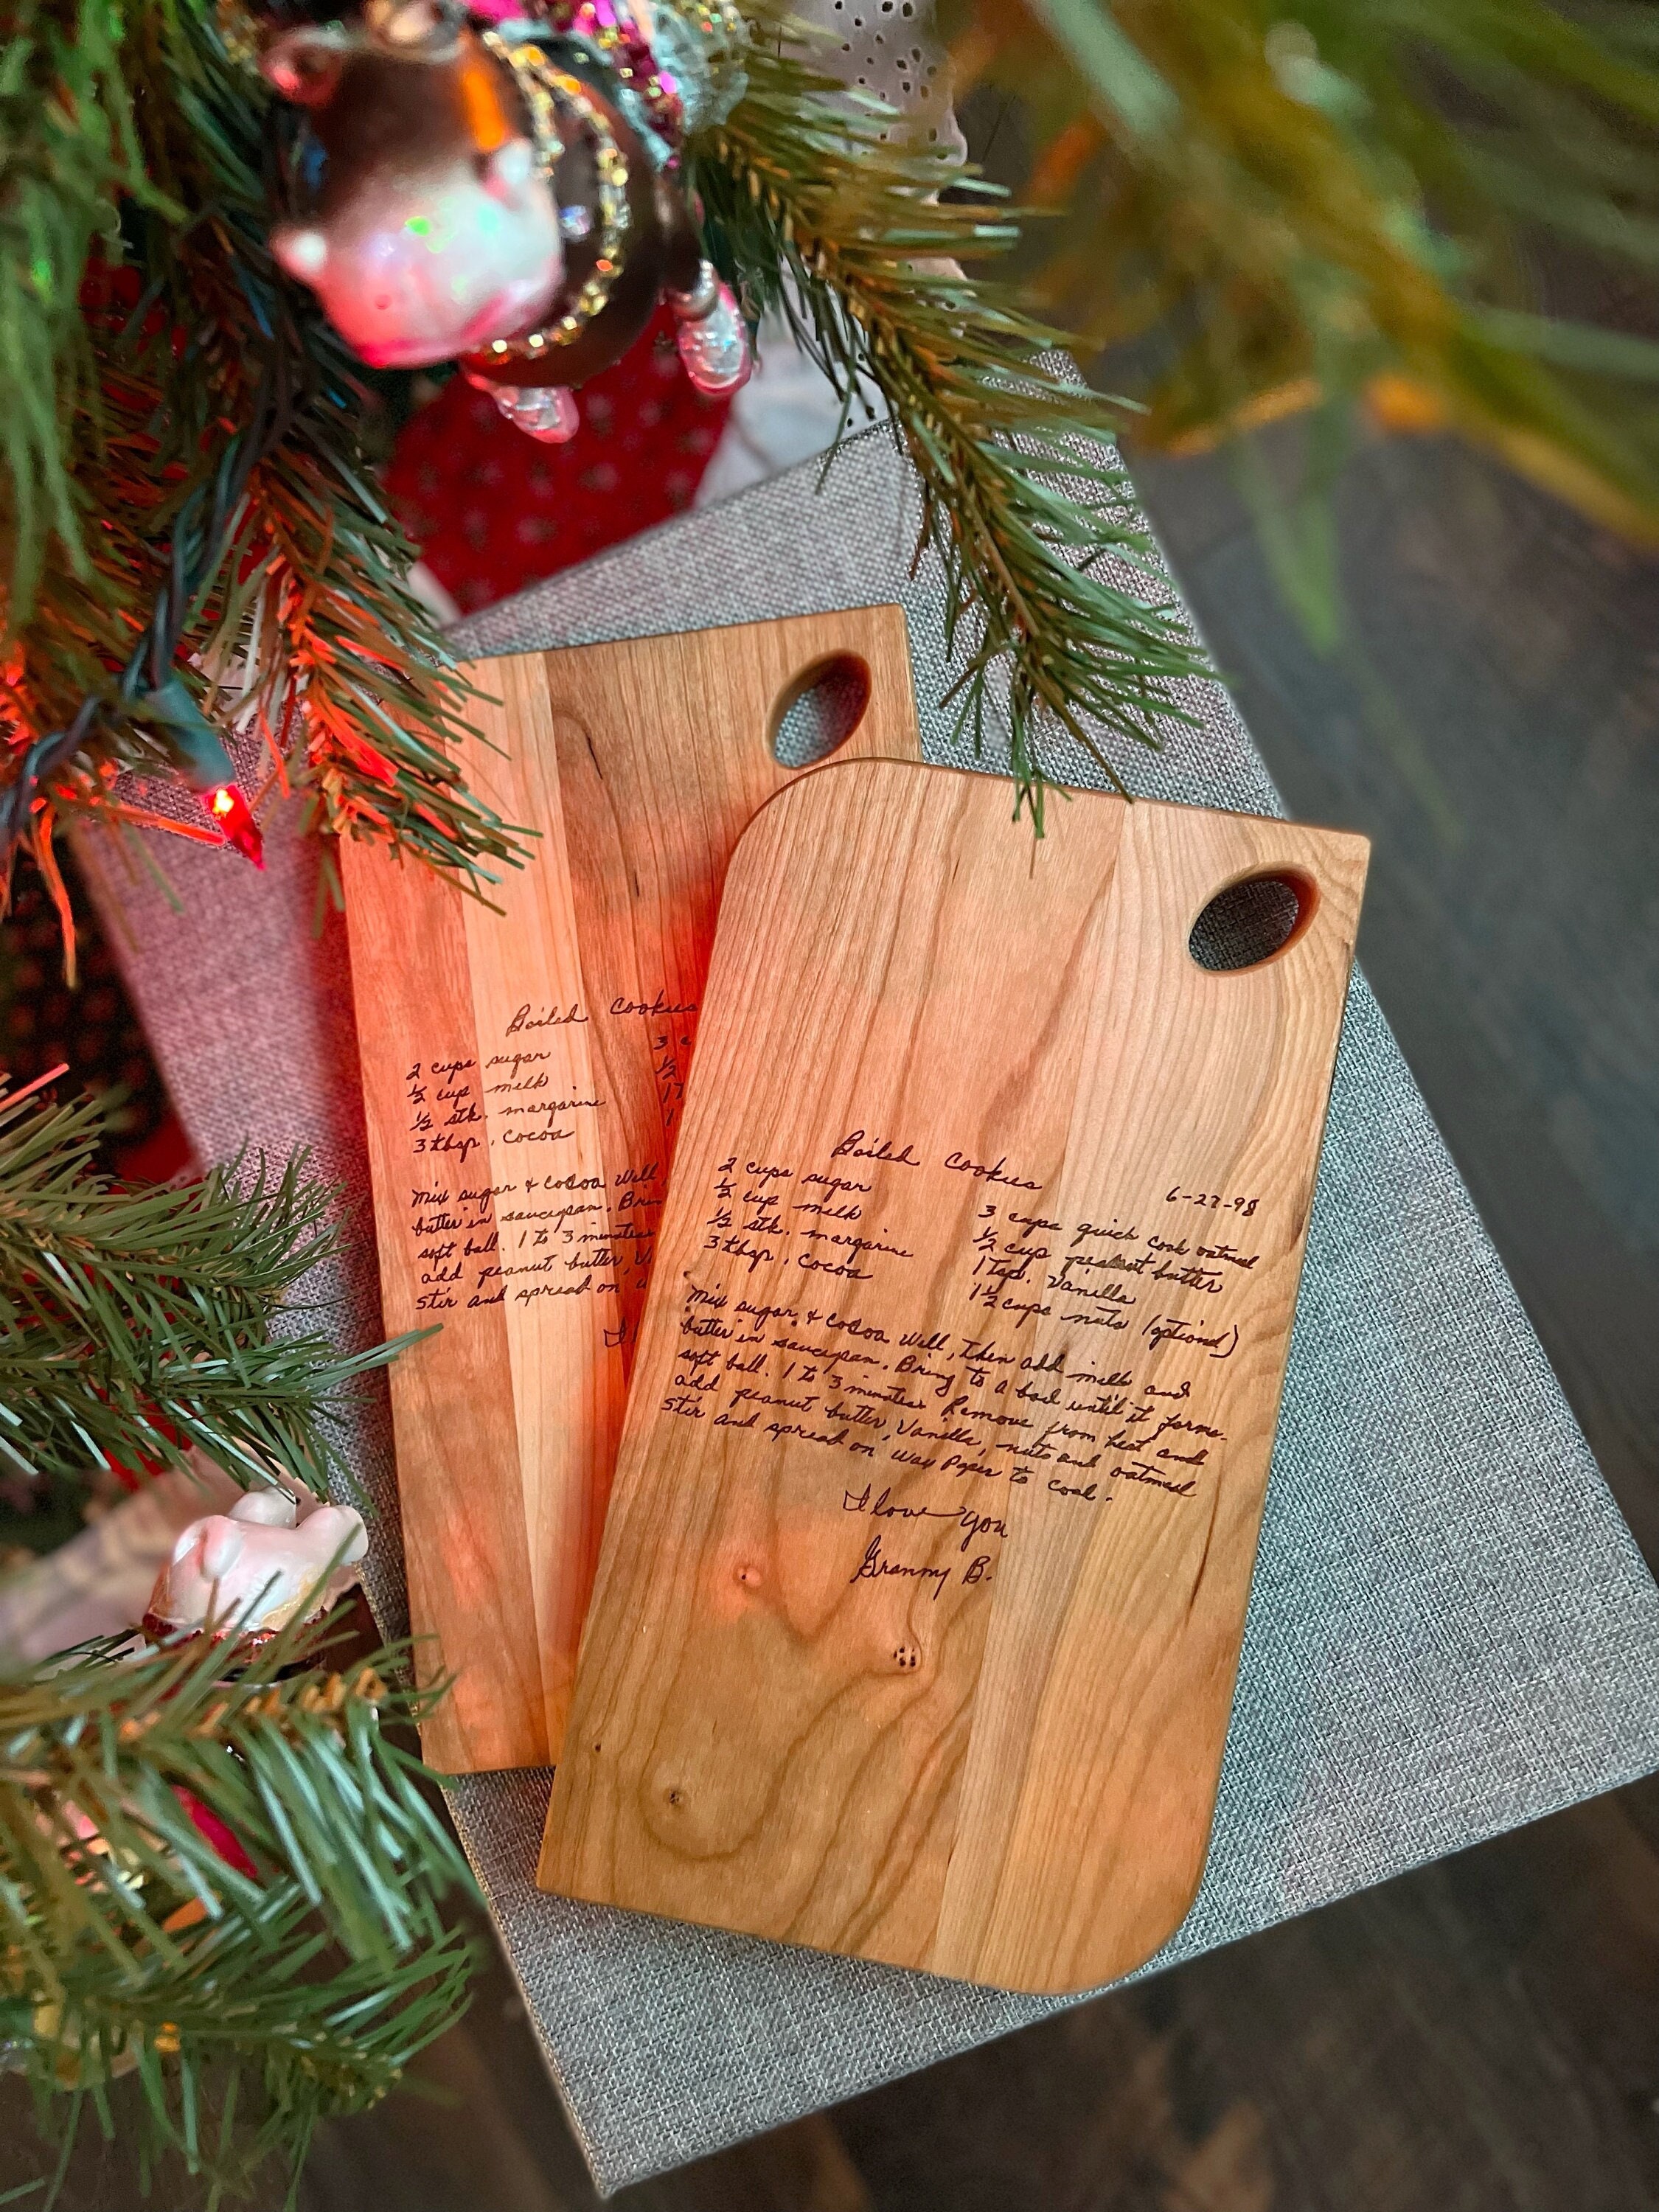 Boiled Cookies
2 cups sugar
1/2 cup milk
1/2 stk. margarine
3 tbsp. Cocoa
3 c
1/2
1T
1
Mix sugar & Cocoa Well,
butter in saucepan. Brin
soft ball. 1 to 3 minutes
add peanut butter, V
Stir and spread on w
I l
Boiled Cookies
6-27-98
2 cups sugar
1/2 cup milk
1/2 stk. margarine
3 tbsp. Cocoa
3 cups quick cook oatmeal
1/2 cup peanut butter
1 Tsp. Vanilla
1 1/2 cups nuts (optional)
Mix sugar & Cocoa Well, then add milk and
butter in saucepan. Bring to a boil until it forms
soft ball. 1 to 3 minutes Remove from heat and
add peanut butter, Vanilla, nuts and oatmeal
Stir and spread on Wax Paper to cool.
I love you
Granny B.